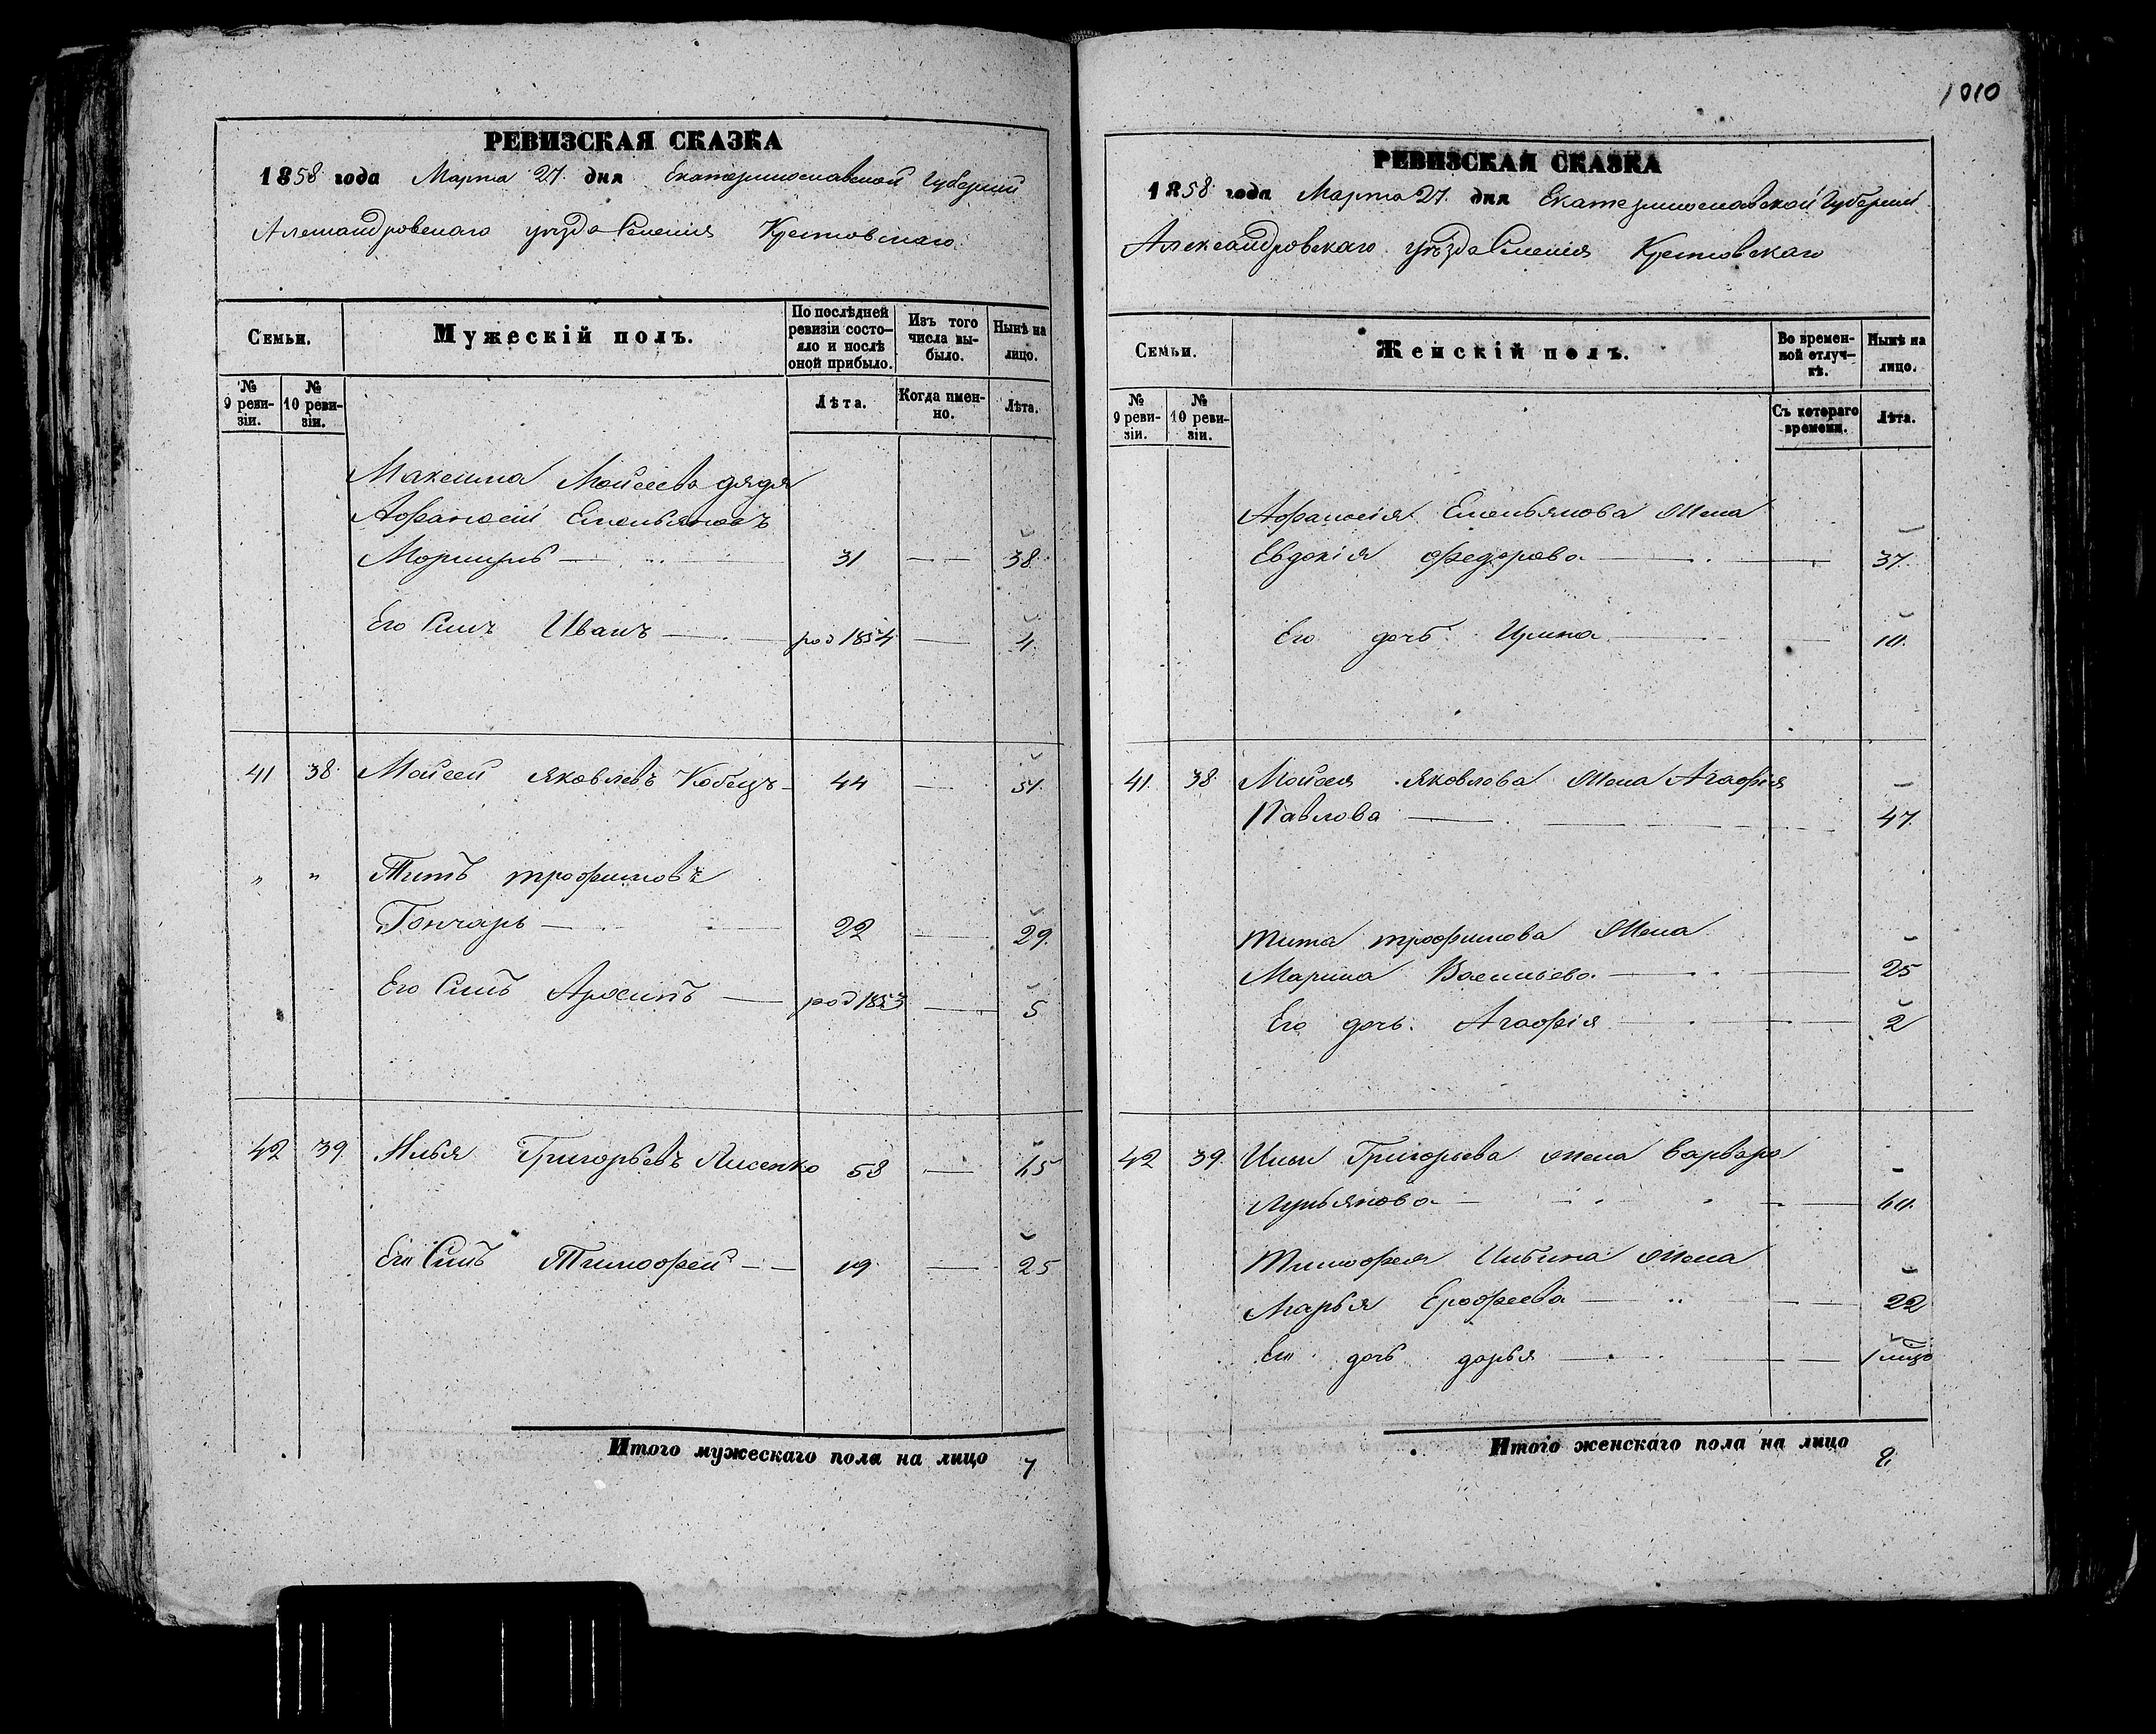 РЕВИЗСКАЯ СКАЗКА
1858 года Марта 27 дня Екатеринославской Губернии
Александровскаго уѣзда Селенія
Семьи.
Мужескій полъ.
По послѣдней ревизіи состояло и послѣ оной прибыло.
Изъ того числа выбыло.
Нынѣ на лицо.
№ 9 ревизіи.
№ 10 ревизіи.
Лѣта.
Когда именно.
Лѣта.
Максима Моисеева дядя
Афанасій Емельяновъ
31 38
Его Сынъ Иванъ род 1854 4
41 38 Мойсей Яковлевъ Кобецъ 44 51
" " Титъ трофимовъ
Гончарь 22 29
Его Сынъ род 1853 5
42 39 Илья Григорьевъ Лисенко 58 65
Его Сынъ Тимофей 19 25
Итого мужескаго пола на лицо 7
1010
РЕВИЗСКАЯ СКАЗКА
1858 года Марта 27 дня Екатеринославской Губерніи
Александровскаго уѣзда Селенія
Семьи.
Женскій полъ.
Во временной отлучкѣ.
Нынѣ на лицо.
№ 9 ревизіи.
№ 10 ревизіи.
Съ котораго времени.
Лѣта.
Афанасія Емельянова жена
Евдокія Федорова 37
Его дочь Ирина
41 38 Мойсея Яковлева жена Агафія
Павлова 47
тита трофимова жена
Марина Васильева 25
Его дочь Агафія 2
42 39 Ильи Григорьева жена Варвара
Лукьянова
Тимофея Ильина жена
Марья Ерофеева 22
Его дочь дарья
Итого женскаго пола на лицо